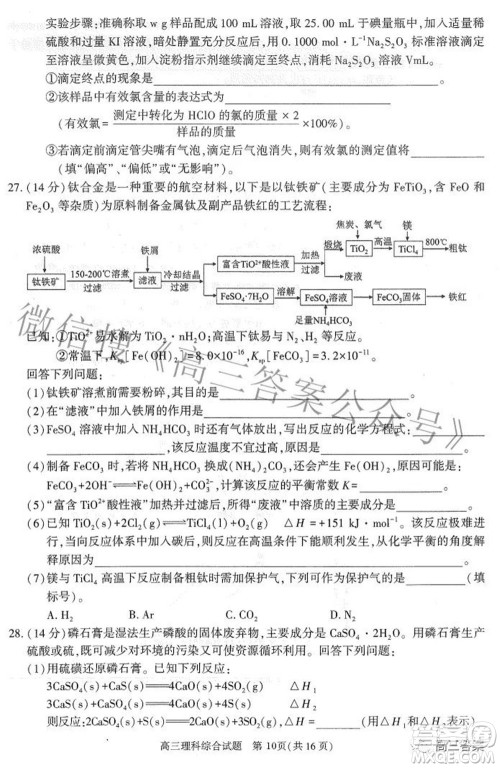 实验步骤：准确称取 w g 样品配成 100 mL 溶液，取 25.00 mL 于碘量瓶中，加入适量稀
硫酸和过量 KI 溶液，暗处静置充分反应后，用 0.1000 mol·L⁻¹Na₂S₂O₃ 标准溶液滴定
至溶液呈微黄色，加入淀粉指示剂继续滴定至终点，消耗 Na₂S₂O₃ 溶液 VmL。
①滴定终点的现象是
②该样品中有效氯含量的表达式为
(有效氯=测定中转化为 HClO 的氯的质量×2/样品的质量×100%)。
③若滴定前滴定管尖嘴有气泡，滴定后气泡消失，则有效氯的测定值将
(填“偏高”、“偏低”或“无影响”)。
27.(14 分)钛合金是一种重要的航空材料，以下是以钛铁矿(主要成分为 FeTiO₃，含 FeO 和
Fe₂O₃ 等杂质)为原料制备金属钛及副产品铁红的工艺流程：
焦炭、氯气 镁
浓硫酸 铁屑 加热 煅烧 TiO₂ 高温 TiCl₄ 800℃ 粗钛
富含TiO²⁺酸性液 过滤 废液
钛铁矿 150-200℃溶煮 过滤 滤液 冷却结晶 过滤
FeSO₄·7H₂O 溶解 FeSO₄溶液 FeCO₃固体 铁红
足量NH₄HCO₃
已知：①TiO²⁺易水解为 TiO₂·nH₂O；高温下钛易与 N₂、H₂ 等反应。
②常温下，Ksp[Fe(OH)₂]=8.0×10⁻¹⁶，Ksp[FeCO₃]=3.2×10⁻¹¹。
回答下列问题：
(1)钛铁矿溶煮前需要粉碎，其目的是
(2)在“滤液”中加入铁屑的作用是
(3)FeSO₄ 溶液中加入 NH₄HCO₃ 时还有气体放出，写出反应的化学方程式：
，该反应温度不宜过高，原因是
(4)制备 FeCO₃ 时，若将 NH₄HCO₃ 换成(NH₄)₂CO₃，还会产生 Fe(OH)₂，原因是
FeCO₃+2OH⁻⇌Fe(OH)₂+CO₃²⁻，计算该反应的平衡常数 K=
(5)“富含 TiO²⁺酸性液”加热并过滤后，所得“废液”中溶质的主要成分是
(6)已知 TiO₂(s)+2Cl₂(g)⇌TiCl₄(g)+O₂(g) ΔH=+151 kJ·mol⁻¹。该反应极难进
行，当向反应体系中加入碳后，则反应在高温条件下能顺利发生，从化学平衡的角度解
释原因为
(7)镁与 TiCl₄ 高温下反应制备粗钛时需加保护气，下列气体可作保护气的是 (填
标号)。
A. H₂ B. Ar C. CO₂ D. N₂
28.(14 分)磷石膏是湿法生产磷酸的固体废弃物，主要成分是 CaSO₄·2H₂O。用磷石膏生产
硫酸或硫，既可减少对环境的污染又可使资源循环利用。回答下列问题：
(1)用硫磺还原磷石膏。已知下列反应：
3CaSO₄(s)+CaS(s)═4CaO(s)+4SO₂(g) ΔH₁
3CaS(s)+CaSO₄(s)═4CaO(s)+4S(g) ΔH₂
则反应：2CaSO₄(s)+S(g)═2CaO(s)+3SO₂(g) ΔH₃= (用 ΔH₁ 和 ΔH₂ 表示)
高三理科综合试题 第 10页(共 16 页)
高三答案
微信搜《高三答案公众号》